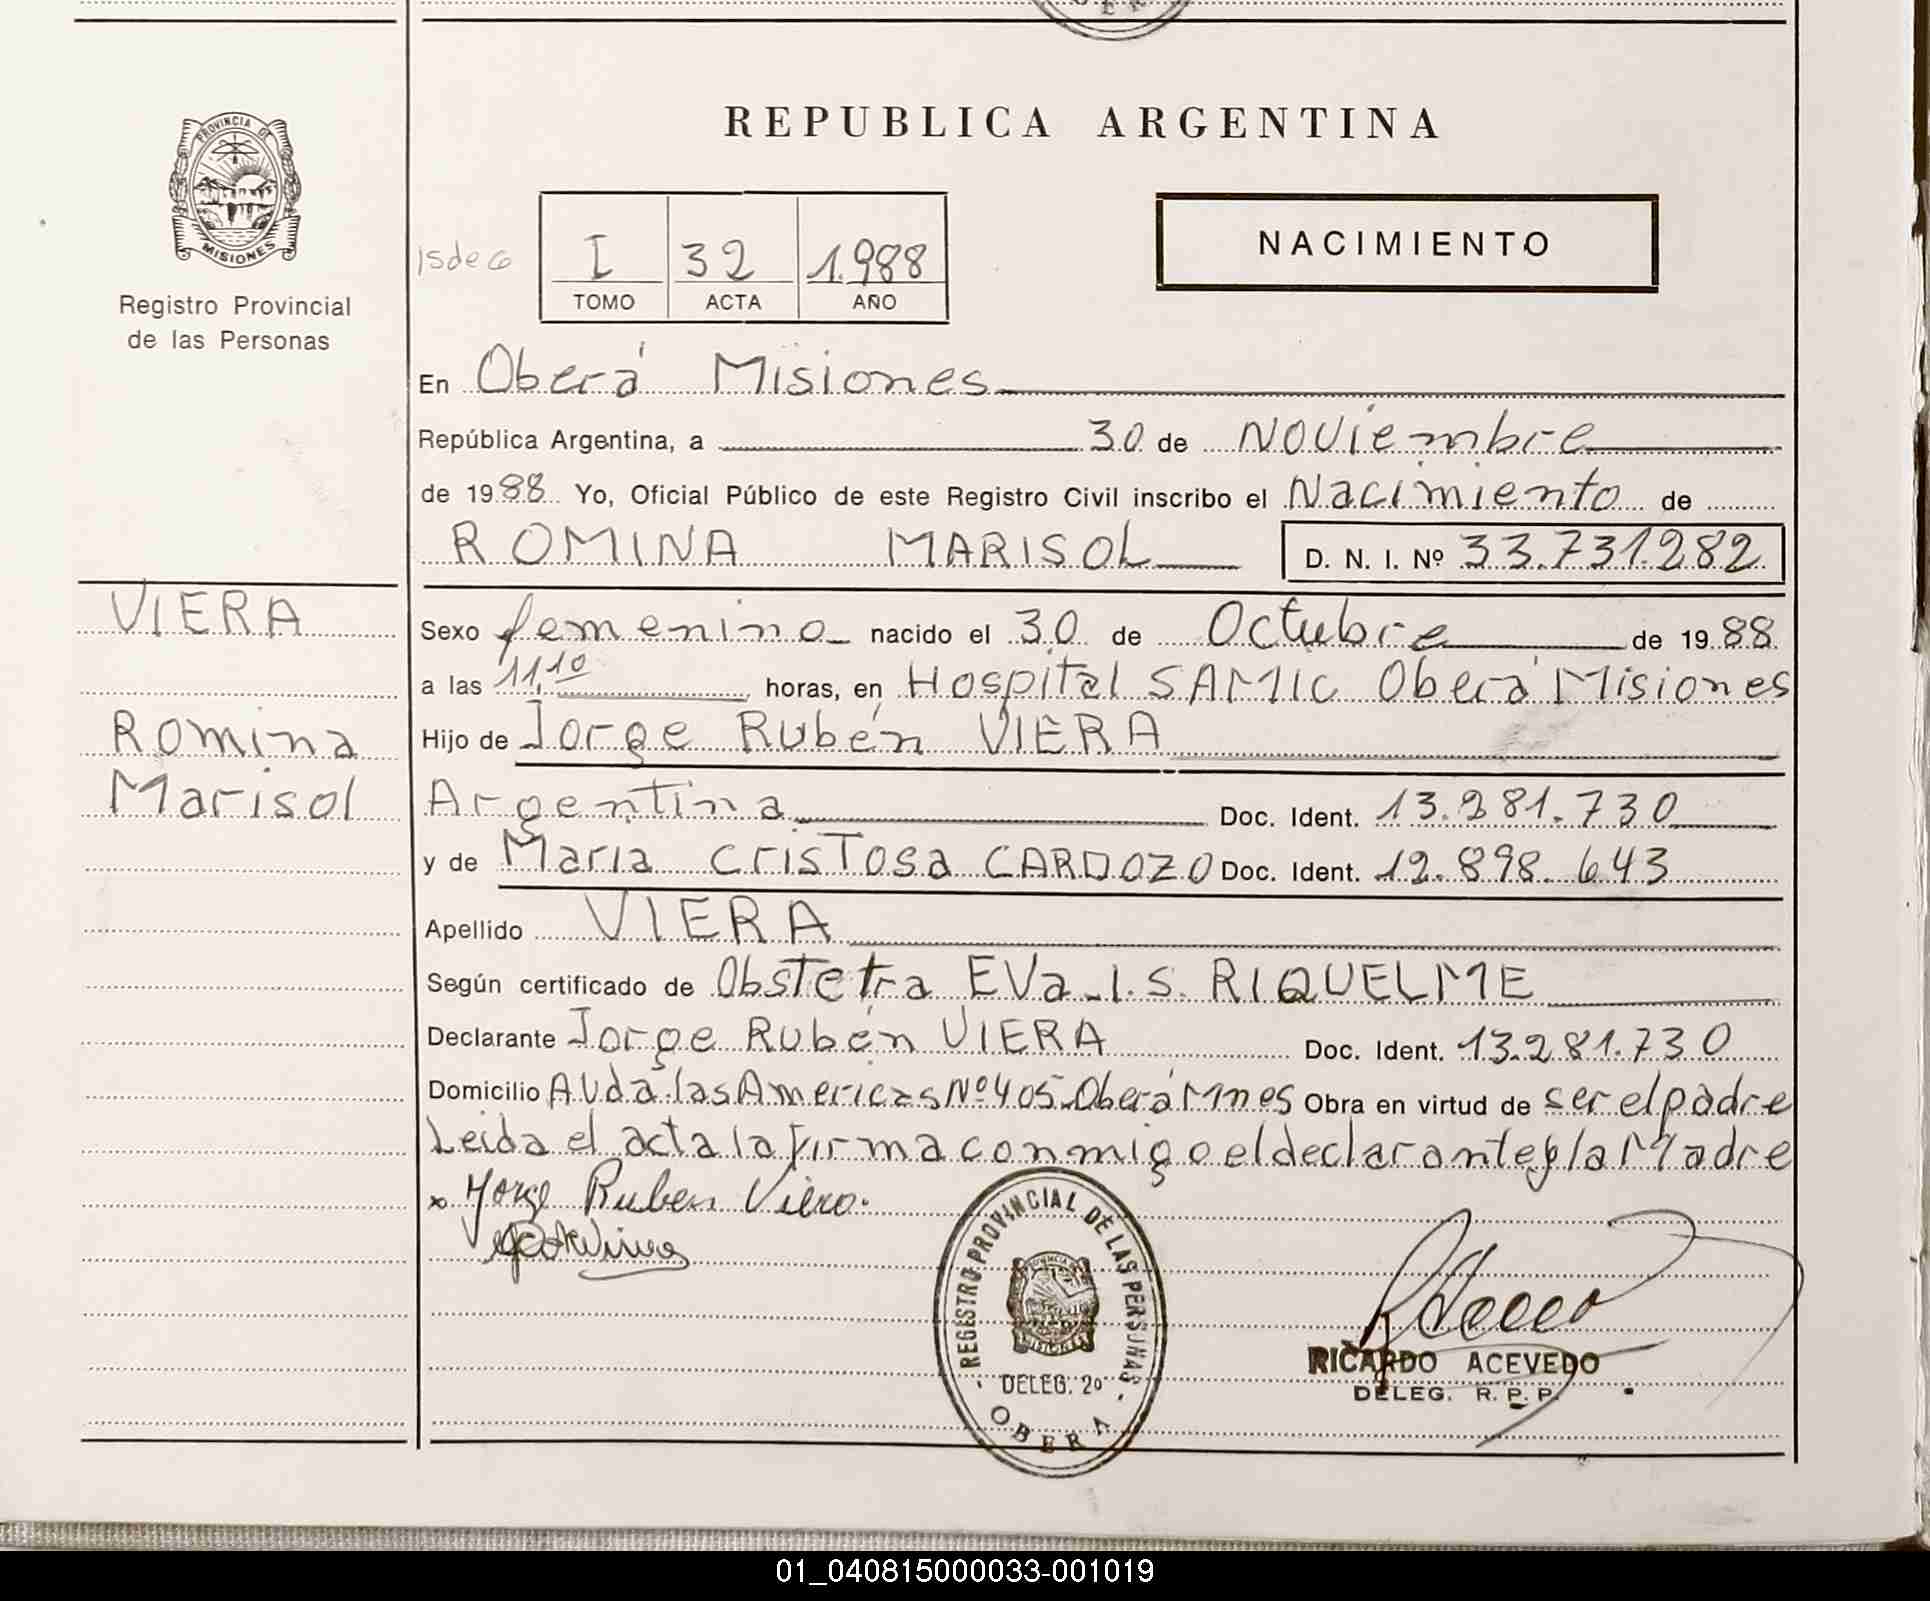 REPUBLICA ARGENTINA
PROVINCIA DE
MISIONES
Registro Provincial
de las Personas
I 32 1.988
TOMO ACTA AÑO
NACIMIENTO
En Oberá Misiones
República Argentina, a 30 de Noviembre
de 1988 Yo, Oficial Público de este Registro Civil inscribo el Nacimiento de
ROMINA MARISOL D. N. I. Nº 33.731.282
VIERA
Romina
Marisol
Sexo femenino nacido el 30 de Octubre de 1988
a las 11,10 horas, en Hospital SAMIC Oberá Misiones
Hijo de Jorge Rubén VIERA
Argentina Doc. Ident. 13.281.730
y de Maria Cristosa CARDOZO Doc. Ident. 12.898.643
Apellido VIERA
Según certificado de Obstetra EVa I. S. RIQUELME
Declarante Jorge Rubén VIERA Doc. Ident. 13.281.730
Domicilio Avda. las Americas Nº 405 Oberá Mnes Obra en virtud de ser el padre
Leida el acta la firma conmigo el declarante y la Madre
x Jorge Ruben Viera.
REGISTRO PROVINCIAL DE LAS PERSONAS
DELEG. 2º
OBERA
RICARDO ACEVEDO
DELEG. R. P. P.
01_040815000033-001019